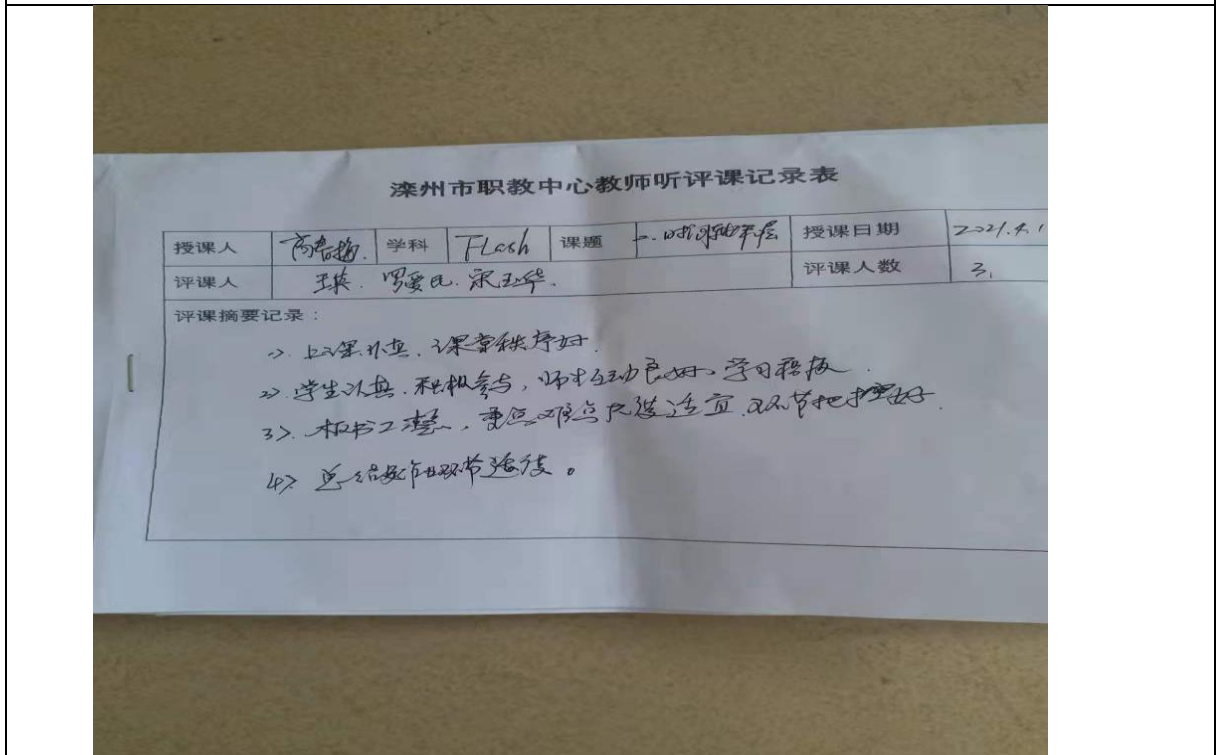 滦州市职教中心教师听评课记录表
授课人 高春梅. 学科 FLash 课题 时间轴 层 授课日期 2021.4.1
评课人 王英. 罗爱民. 宋玉华. 评课人数 3.
评课摘要记录：
1>. 上课认真, 课堂秩序好.
2>. 学生认真. 积极参与, 师生互动良好. 学习积极.
3>. 板书工整, 重点难点 适宜. 环节把握好.
4>. 总结 环节 。